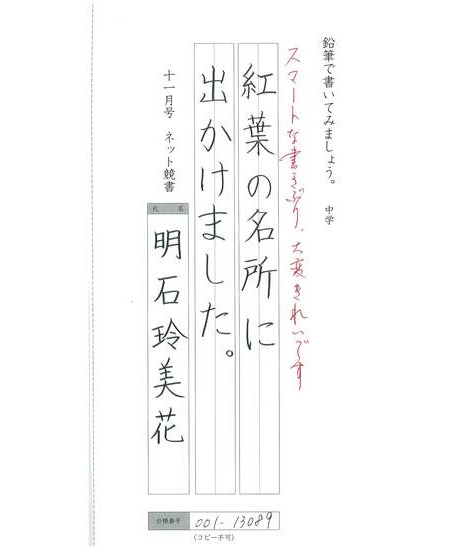 鉛筆で書いてみましょう。 中学
スマートな書きぶり、大変きれいです
紅葉の名所に
出かけました。
十一月号 ネット競書
氏名
明石玲美花
台帳番号 001-13089
(コピー不可)